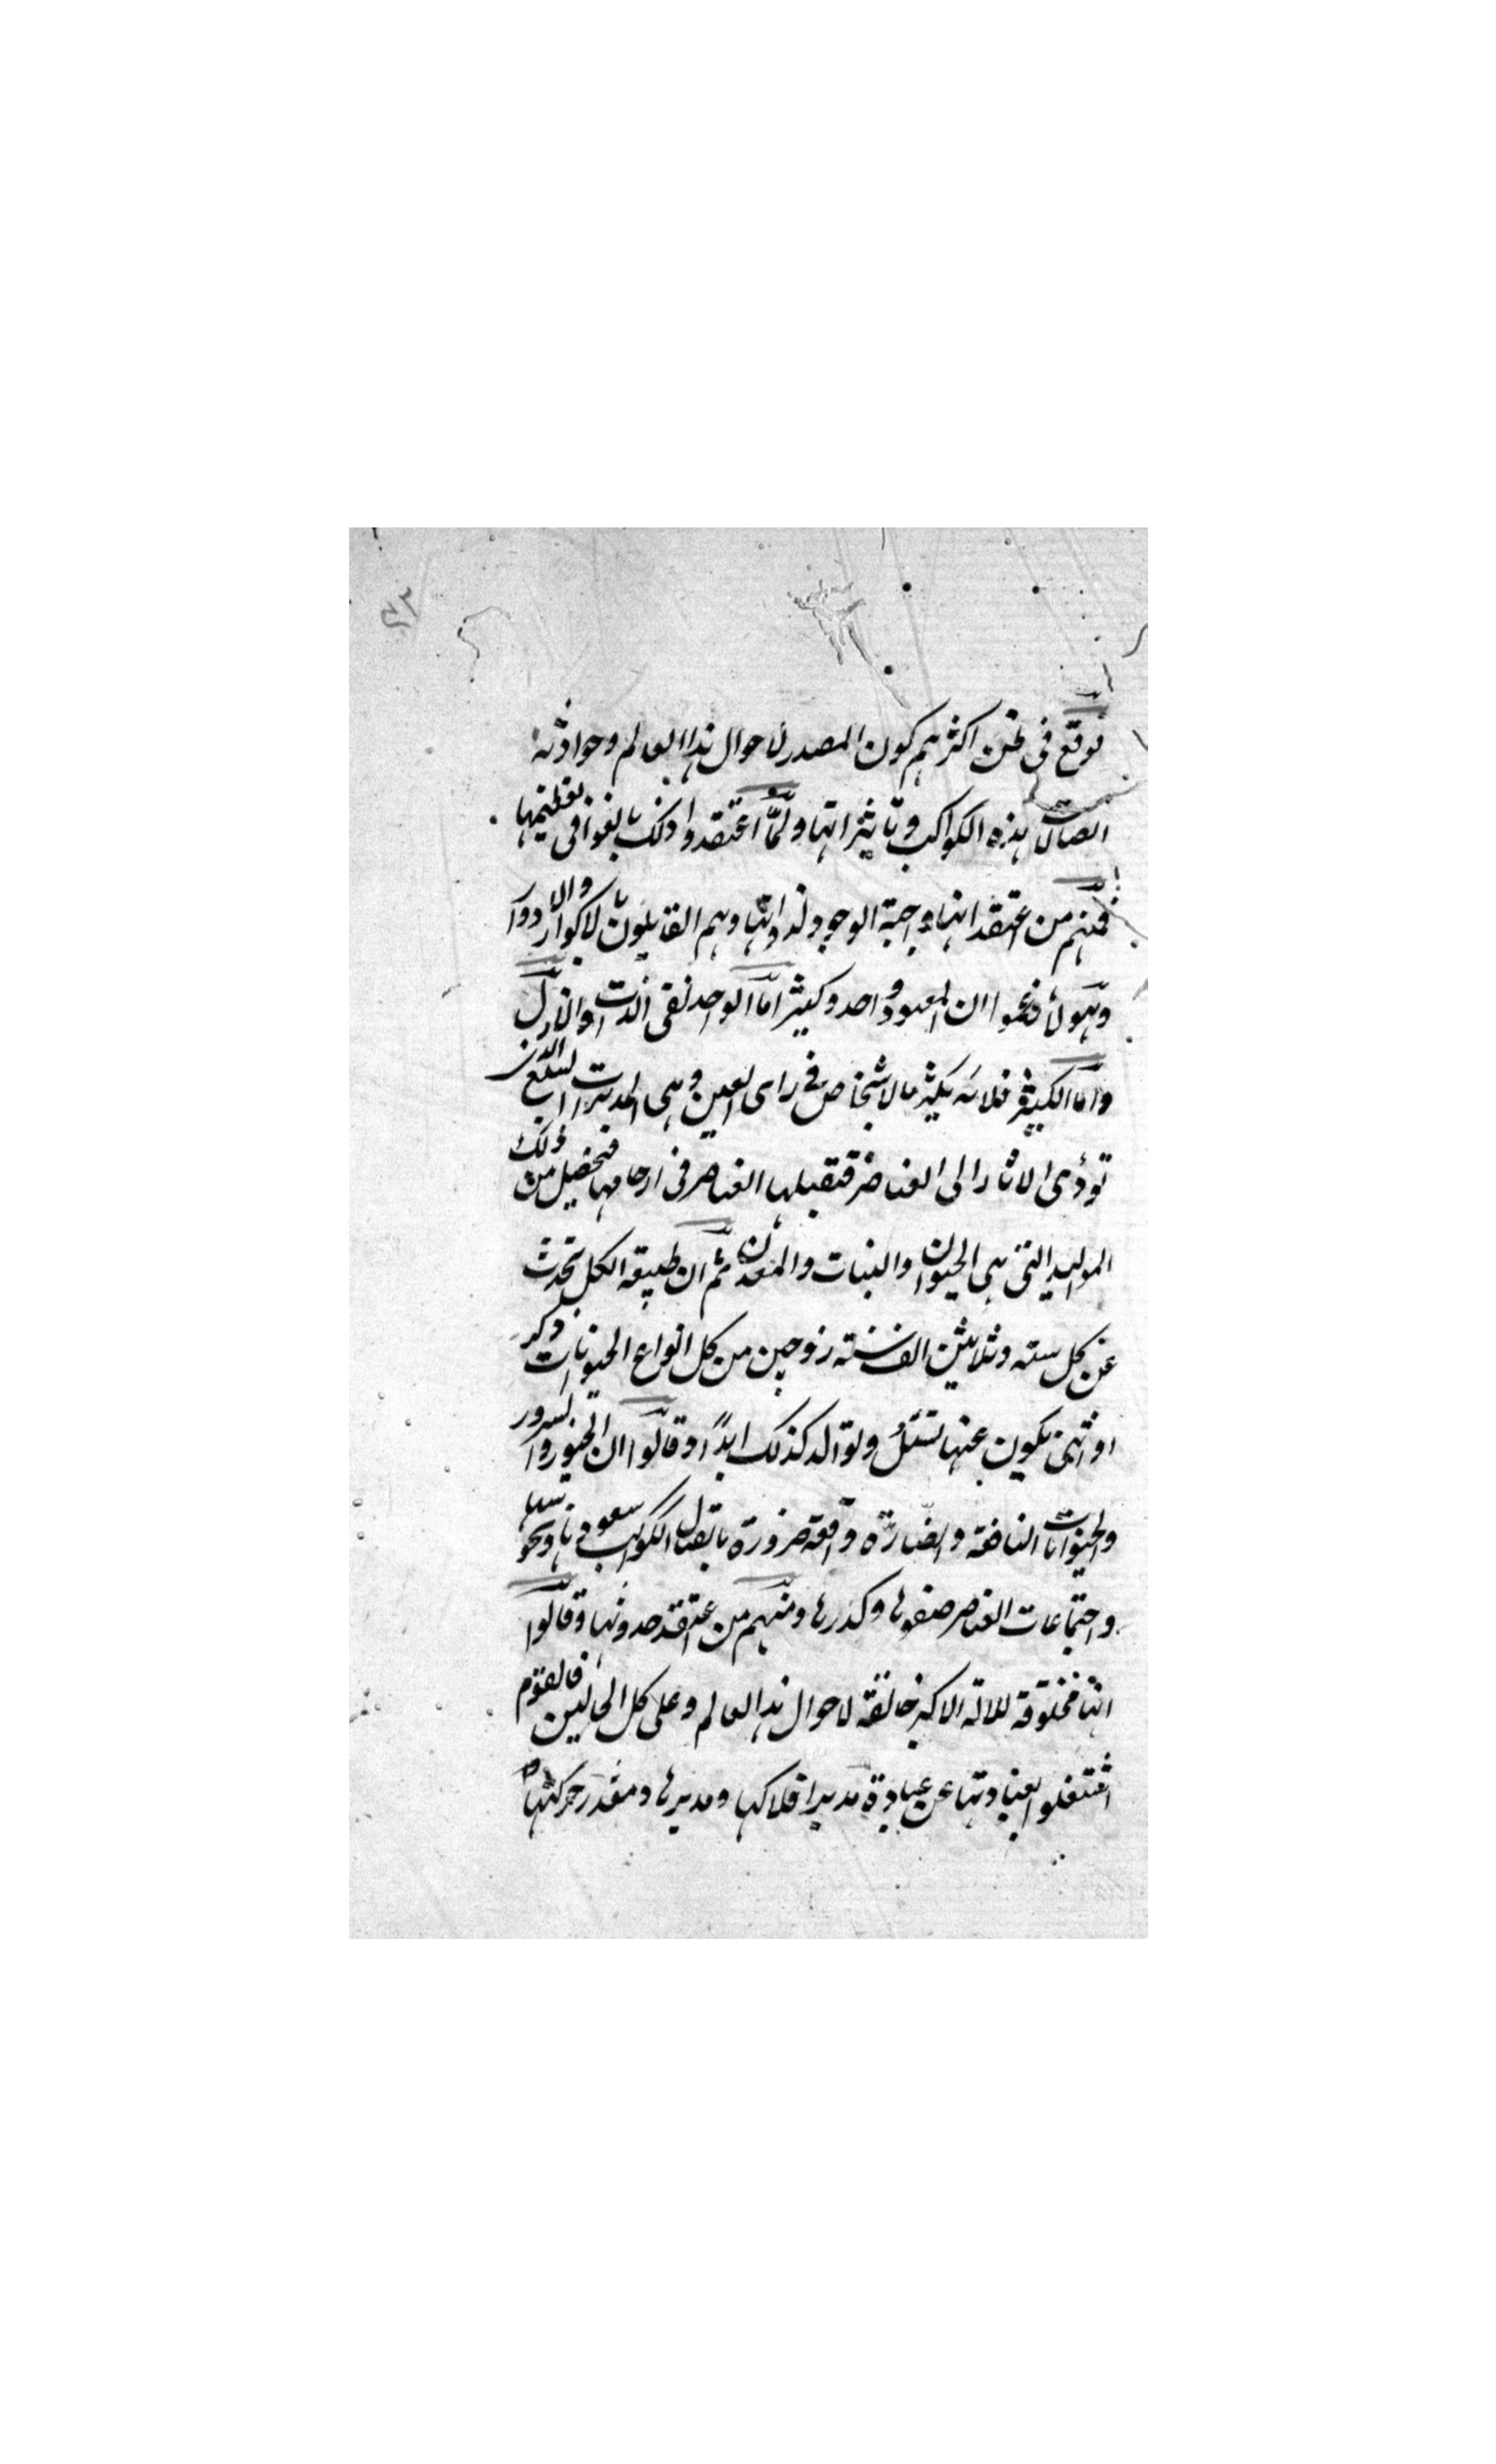 ٢٣
فوقع فى ظن اكثرهم كون المصدر لاحوال هذا العالم وحوادثه
اتصالات هذه الكواكب وتاثيراتها ولما اعتقدوا ذلك بالغوا فى تعظيمها
فمنهم من اعتقد انها واجبة الوجود لذواتها وهم القايلون بالاكوار والادوار
وهولاء زعموا ان المعبود واحد وكثير اما الواحد ففى الذات والازل
واما الكثير فلانه يكثر بالاشخاص فى راى العين وهى المدبرات السبع التى
تودى الاثار الى العناصر فتقبلها العناصر فى ارحامها فتحصل من ذلك
المواليد التى هى الحيوان والنبات والمعدن ثم ان طبيعة الكل تحدث
عن كل ستة وثلاثين الف سنة زوجين من كل انواع الحيوانات ذكر
او انثى يكون عنها تناسل وتوالد كذلك ابدا وقالوا ان الخير والشرور
والحيوانات النافعة والضارة واقعة ضرورة باتصال الكواكب سعودها ونحوستها
واجتماعات العناصر صفوها وكدرها ومنهم من اعتقد حدوثها وقالوا
انها مخلوقة للاله الاكبر خالقة لاحوال هذا العالم وعلى كل الحالين فالقوم
اشتغلوا بعبادتها عن عبادة مدير افلاكها ومدبرها ومقدر حركتها